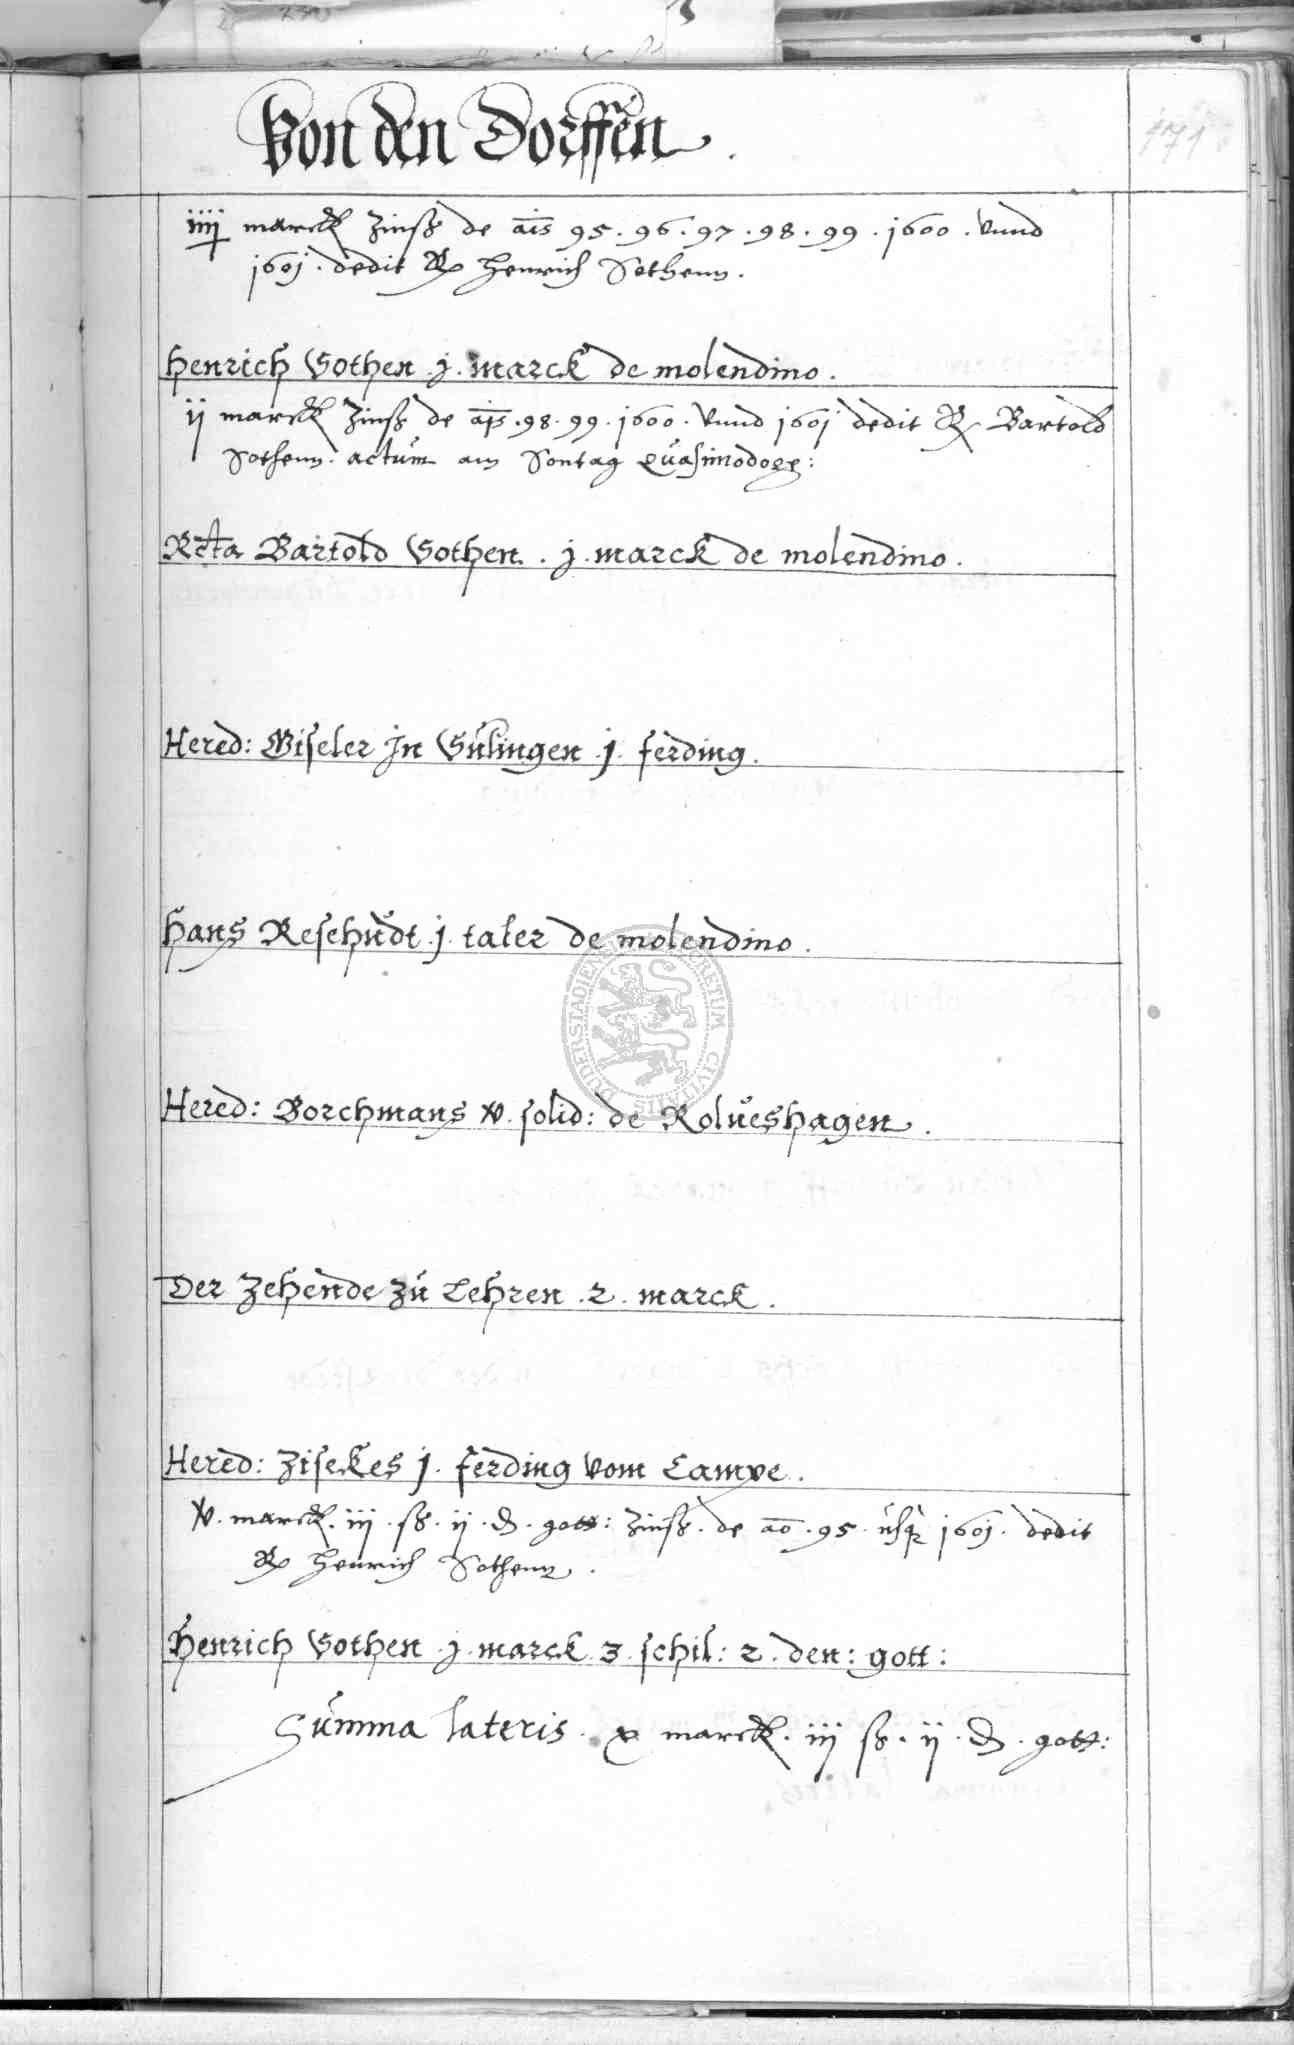 Von den Dorffen.
171
iiij marck Zinß de ais 95. 96. 97. 98. 99. 1600. vnnd
1601. dedit Henrich Sothenn.
Henrich Sothen .j. marck de molendino.
ij marck Zinß de ais .98. 99. 1600. vnnd 1601 dedit Bartold
Sothenn. actum am Sontag Quasimodoge:
Rcta Bartold Sothen. j. marck de molendino.
Hered: Giseler Jn Sulingen .j. ferding.
Hans Resehudt .j. taler de molendino.
DUDERSTADIENSE CIVITATIS
Hered: Borchmans v. solid: de Rolueshagen.
Der Zehende zu Lehren .2. marck.
Hered: Zisekes j. ferding vom Campe.
v. marck. iij. ß. ij. d. gott: Zinß. de ao. 95. usq 1601. dedit
Henrich Sothenn.
Henrich Sothen .j. marck 3 schil: 2. den: gott:
Summa lateris. x marck. iij ß. ij. d. gott: